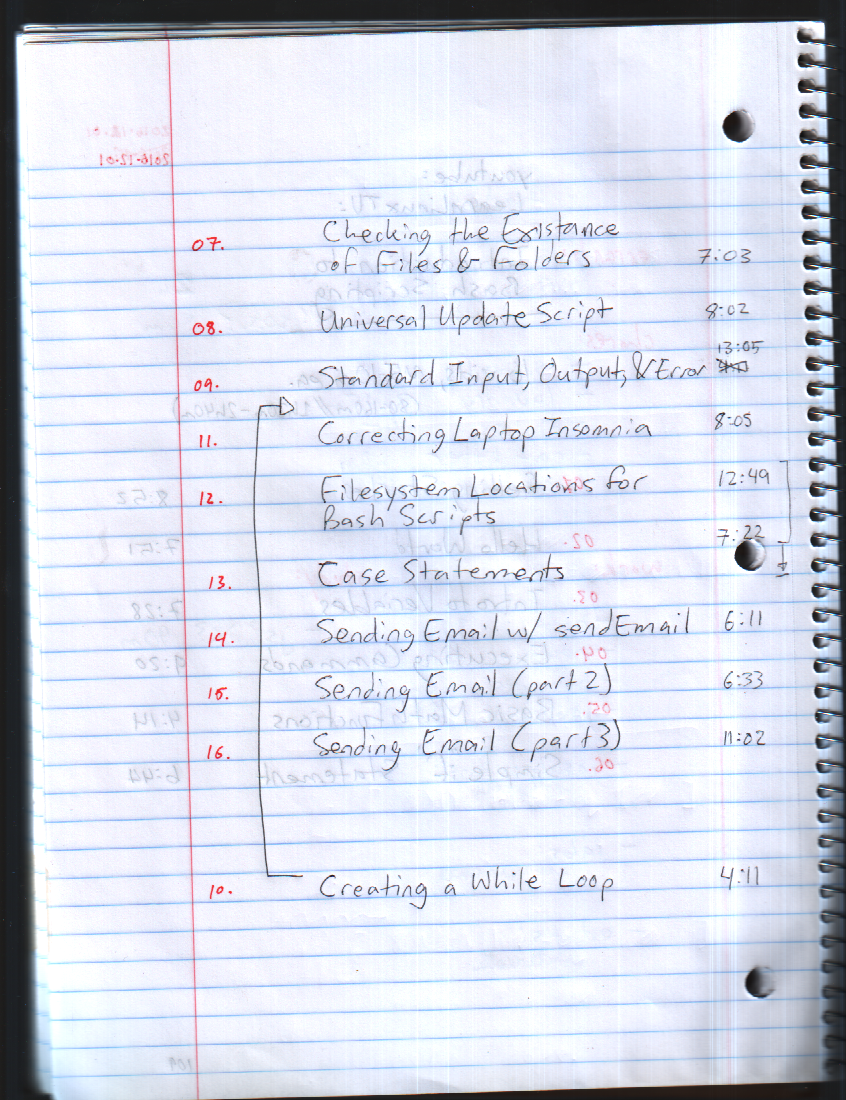 07. Checking the Existance
of Files & Folders 7:03
08. Universal Update Script 8:02
13:05
09. Standard Input, Output, & Error
11. Correcting Laptop Insomnia 8:05
12. Filesystem Locations for 12:49
Bash Scripts
7:22
13. Case Statements
14. Sending Email w/ sendEmail 6:11
15. Sending Email (part 2) 6:33
16. Sending Email (part 3) 11:02
10. Creating a While Loop 4:11